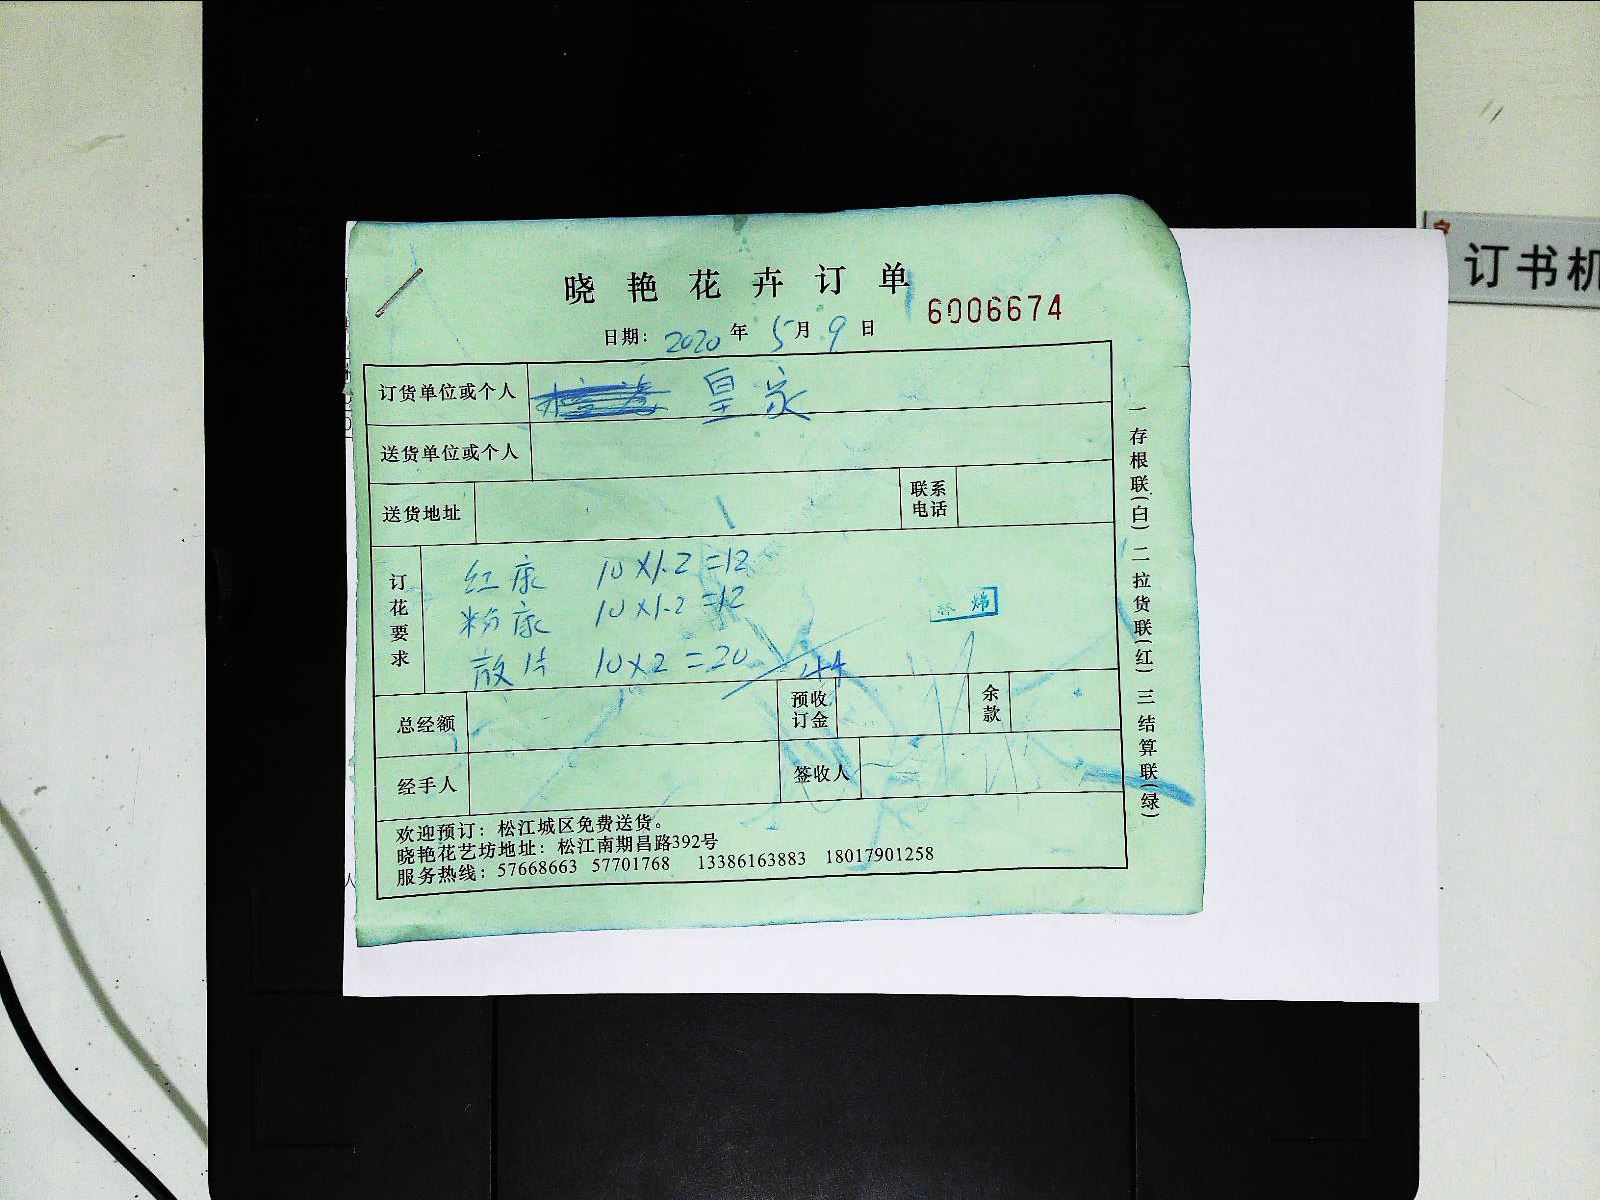 晓艳花卉订单
6006674
日期: 2020 年 5 月 9 日
订货单位或个人 皇家
送货单位或个人
送货地址 联系电话
订花要求
红康 10×1.2=12
粉康 10×1.2=12
散片 10×2=20
44
总经额 预收订金 余款
经手人 签收人
欢迎预订：松江城区免费送货。
晓艳花艺坊地址：松江南期昌路392号
服务热线：57668663 57701768 13386163883 18017901258
一存根联(白) 二拉货联(红) 三结算联(绿)
订书机